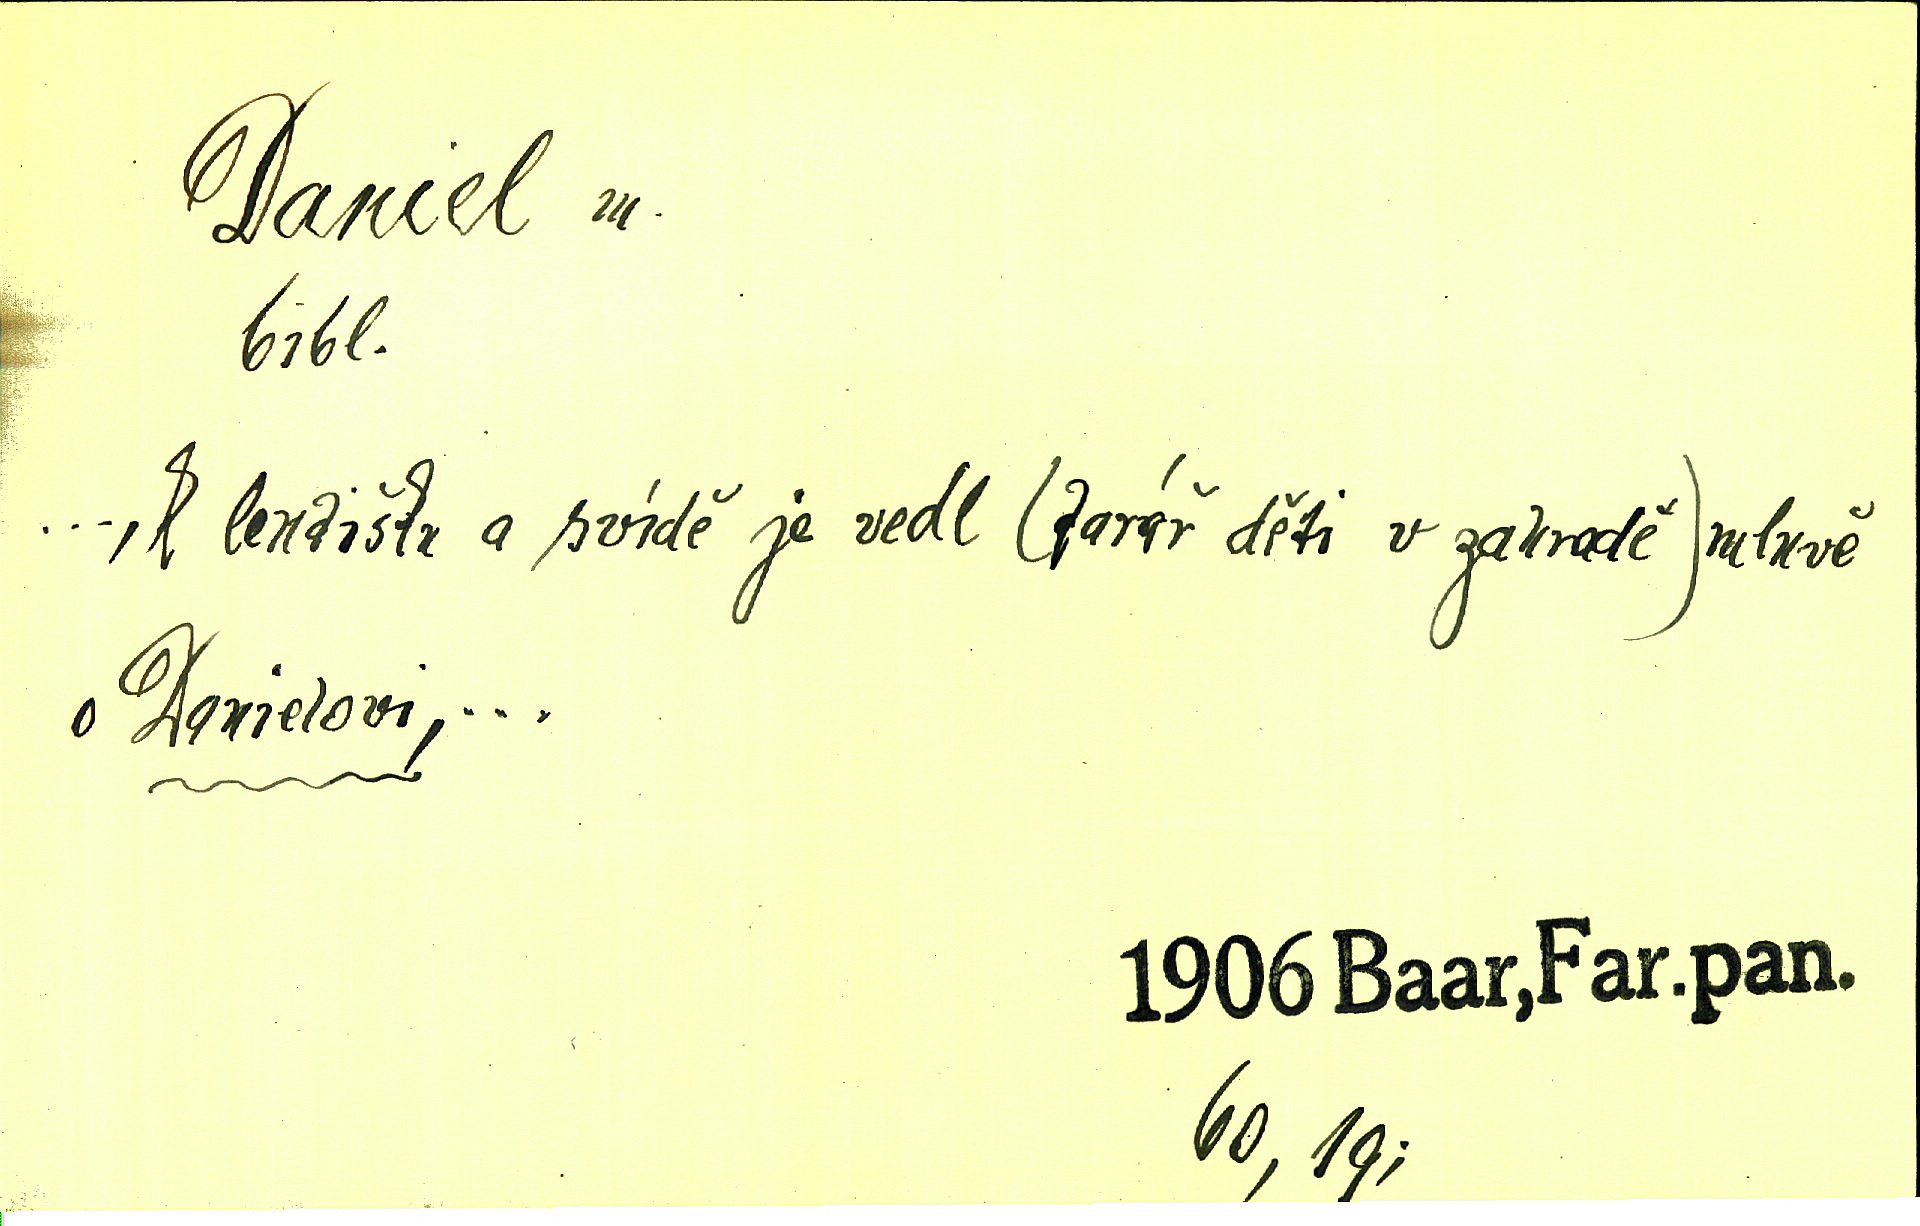 Daniel m.
bibl.
..., k lentišku a svídě je vedl (farář děti v zahradě) mluvě
o Danielovi, ...
1906 Baar, Far. pan.
60, 19;